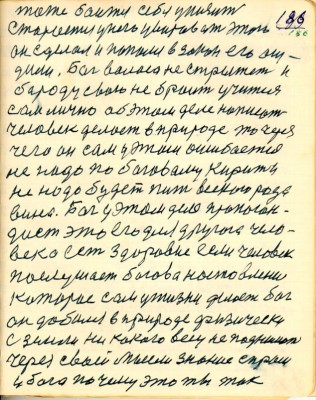 тоже боится себя унизить
186
186
он сделал и попал в закон его осу-
дили. Бог волоса не стрижет и
бороду свою не броит учится
сам лично об этом деле напишет
человек делает в природе то через
чего он сам у этом ошибается
не надо по богавому курить
не надо будет пит всякого рода
вина. Бог у этом деле пропоган-
дист это его для другога чело-
века ест здоровие если человек
послушает богова наставления
которое сам у жизни делает бог
он добился в природе физически
с земли никакого весу не поднимать
через свои мысли знание спроси
у бога почему это ты так